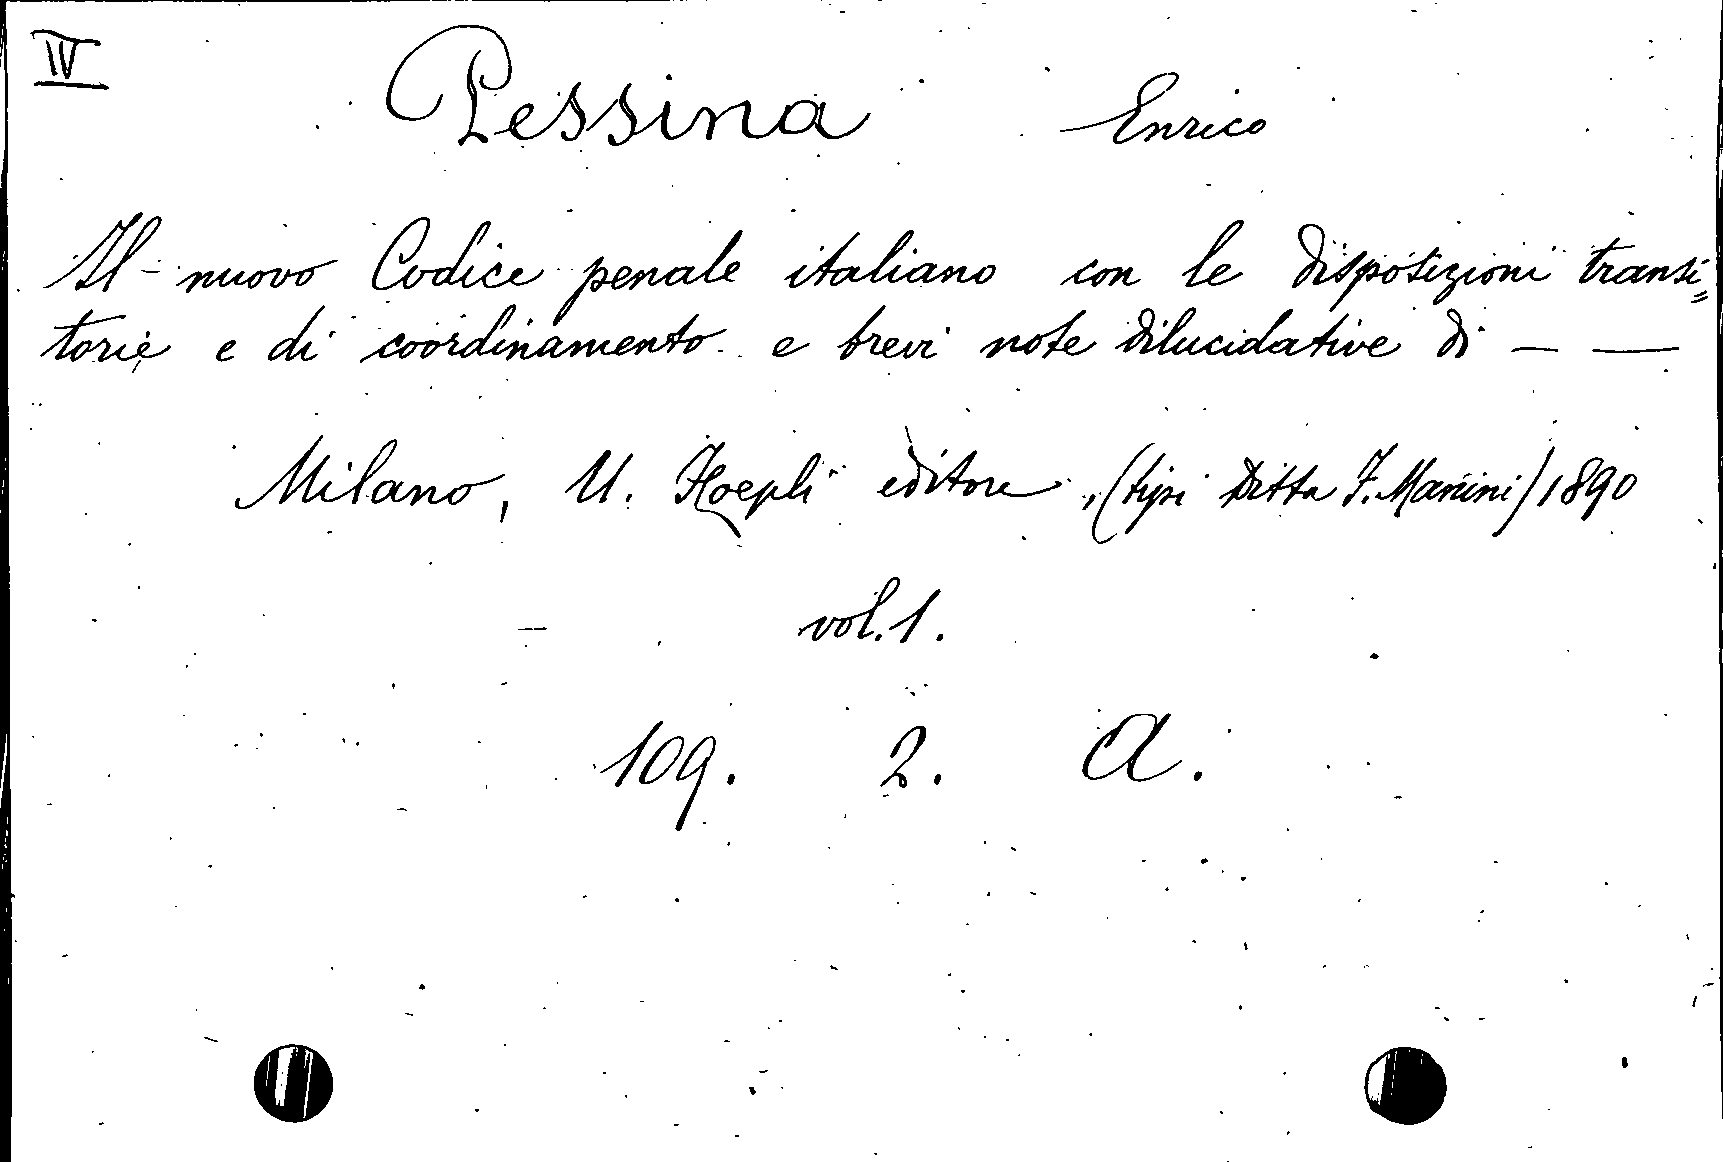 IV
Pessina Enrico
Il nuovo Codice penale italiano con le disposizioni transi=
torie e di coordinamento e brevi note dilucidative di — —
Milano, U. Hoepli editore, (tipi Ditta F. Manini) 1890
vol. 1.
109. 2. A.